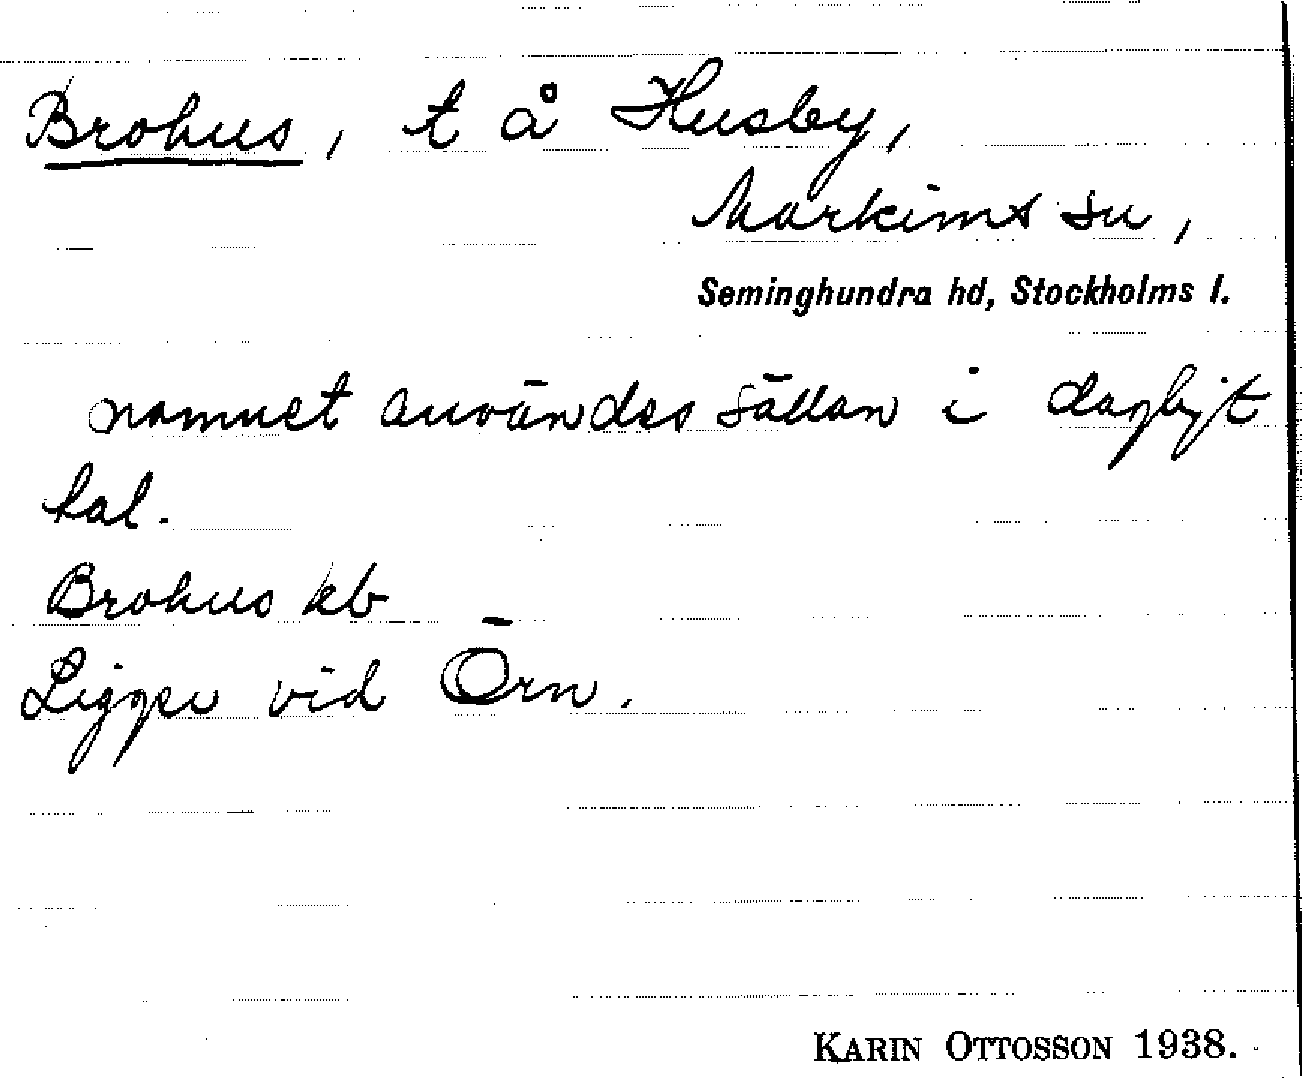 Brohus, t å Husby,
Markims sn,
Seminghundra hd, Stockholms l.
namnet användes sällan i dagligt
tal.
Brohus kb
Ligger vid Örn.
KARIN OTTOSSON 1938.